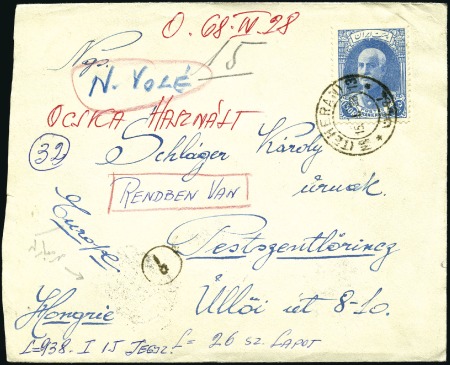 O. 68-IV-28
Ngs.
N. VOLÉ
15
OCSKA HASZNÁLT
32
Schláger Károly
úrnak
RENDBEN VAN
Europe
Pestszentlőrincz
Hongrie
Üllői út 8-10.
L=938. I 15 JEGYZ. L= 26 SZ. LAPOT
TEHERAN